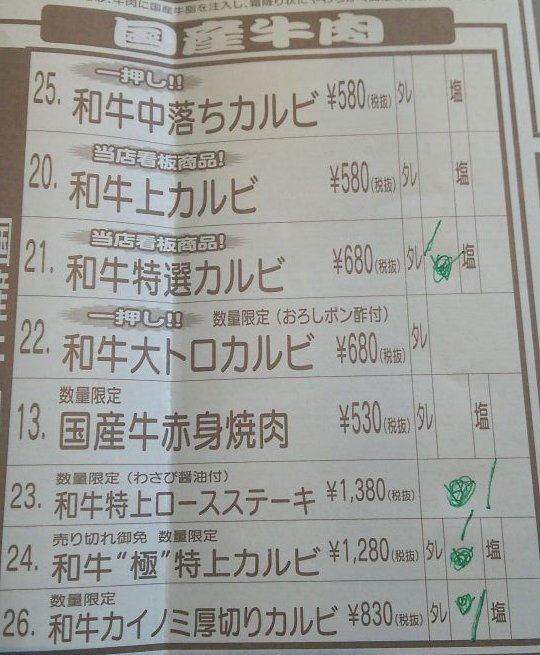 国産牛肉
一押し!!
25. 和牛中落ちカルビ ¥580(税抜) タレ 塩
当店看板商品!
20. 和牛上カルビ ¥580(税抜) タレ 塩
当店看板商品!
21. 和牛特選カルビ ¥680(税抜) タレ 塩
一押し!! 数量限定(おろしポン酢付)
22. 和牛大トロカルビ ¥680(税抜) タレ
数量限定
13. 国産牛赤身焼肉 ¥530(税抜) タレ 塩
数量限定(わさび醤油付)
23. 和牛特上ロースステーキ ¥1,380(税抜)
売り切れ御免 数量限定
24. 和牛"極"特上カルビ ¥1,280(税抜) タレ 塩
数量限定
26. 和牛カイノミ厚切りカルビ ¥830(税抜) タレ 塩